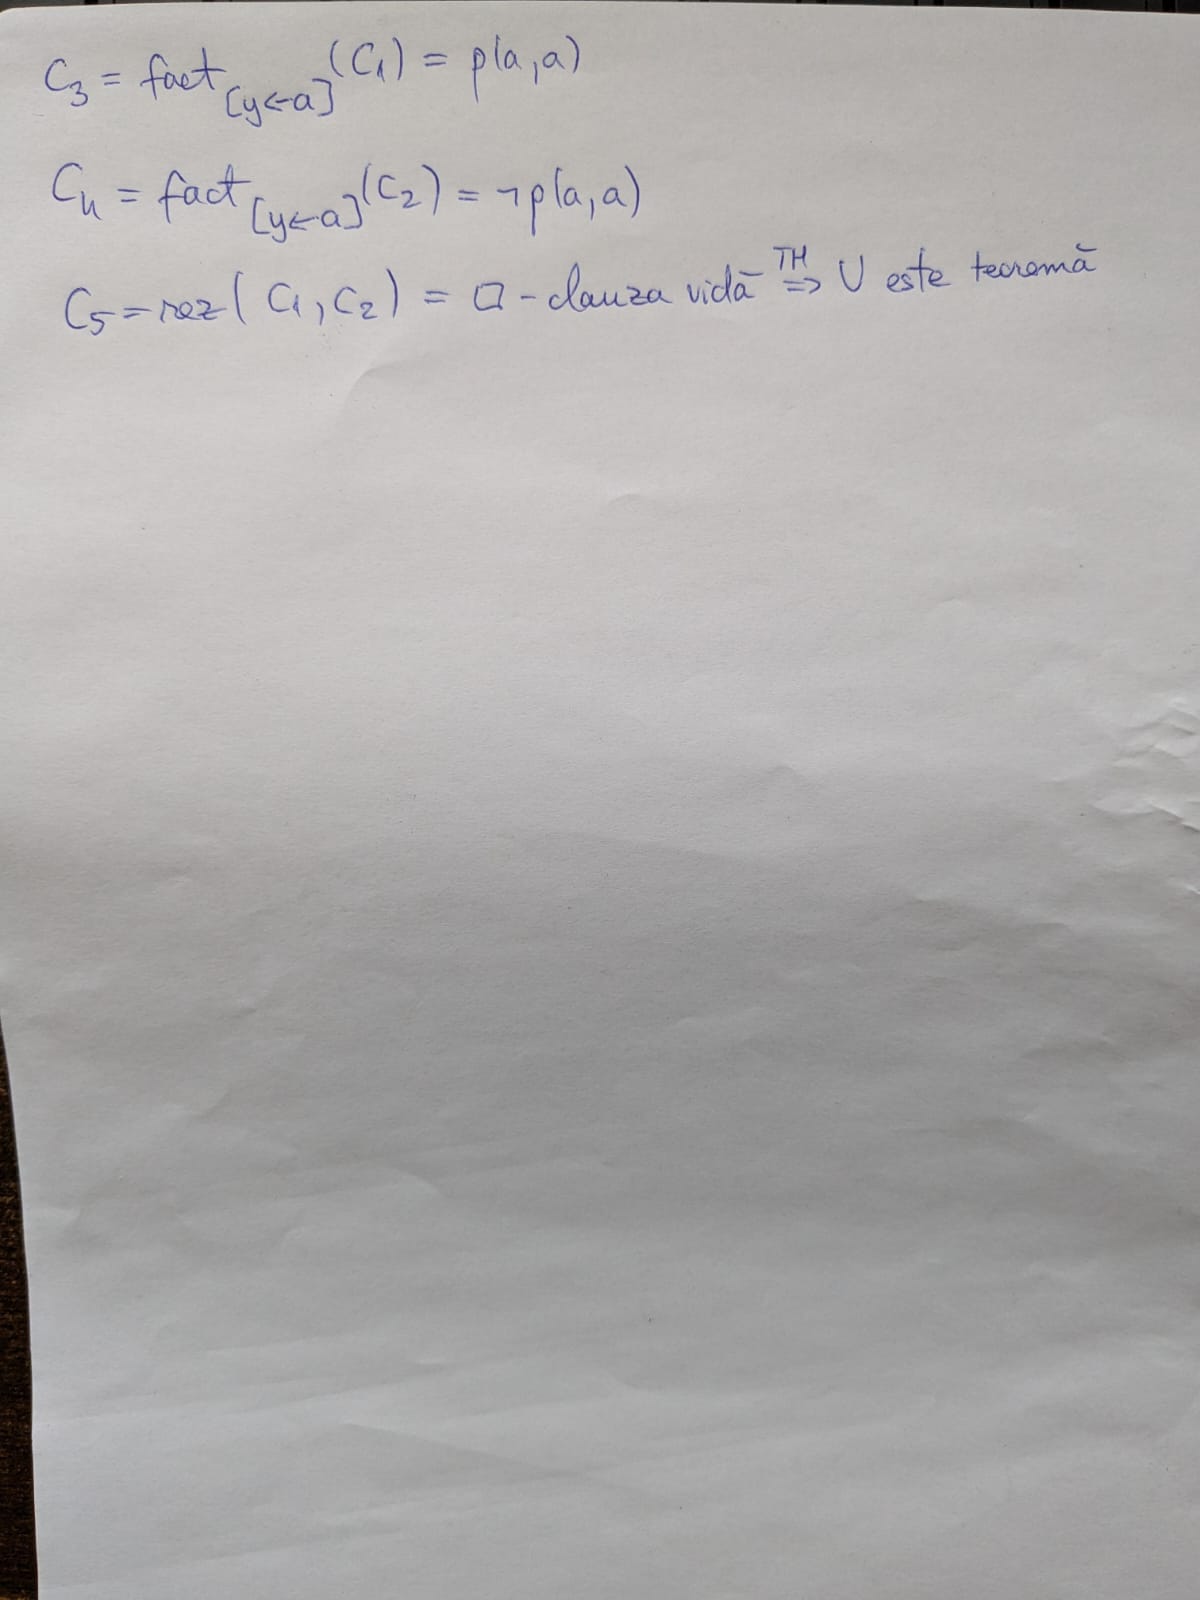 C₃ = fact[y←a](C₁) = p(a,a)
C₄ = fact[y←a](C₂) = ¬p(a,a)
C₅ = rez(C₁,C₂) = □ - clauza vidă TH⇒ U este teoremă